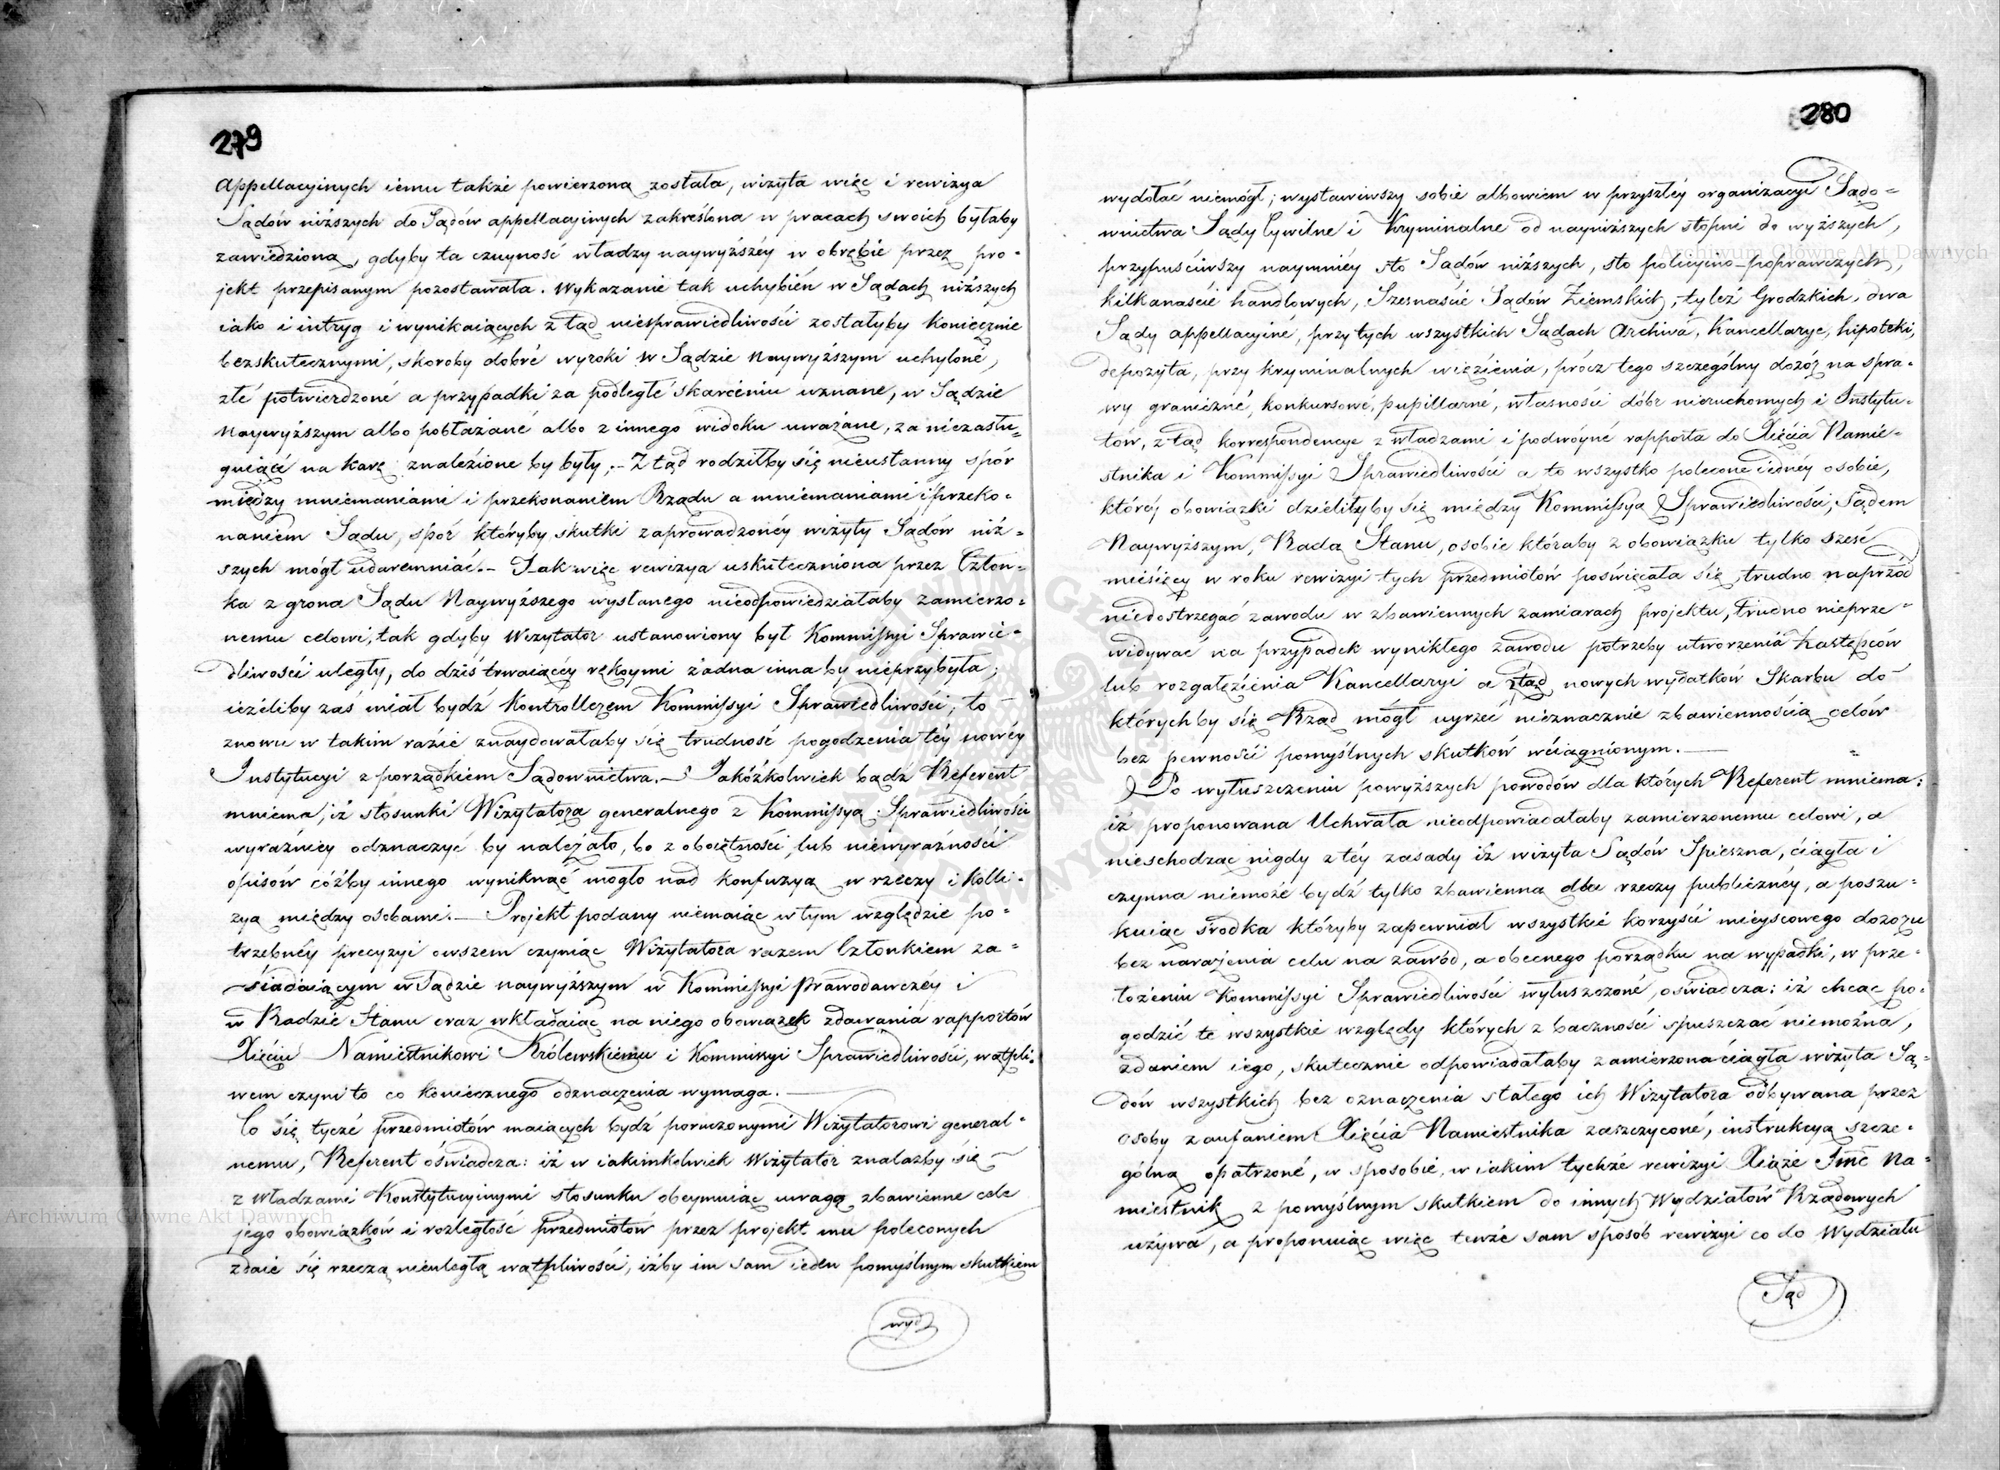 279
appellacyinych iemu także powierzona została, wizyta więc i rewizya
Sądów niższych do Sądów appellacyinych zakreślona w pracach swoich byłaby
zawiedziona, gdyby ta czynność władzy naywyższéy w obrębie przez pro-
jekt przepisanym pozostawała. Wykazanie tak uchybień w Sądach niższych
iako i intryg i wynikaiących z tąd niesprawiedliwości zostałyby koniecznie
bezskutecznymi, skoroby dobré wyroki w Sądzie Naywyższym uchyloné,
złé potwierdzoné a przypadki za podległé skarceniu uznane, w Sądzie
Naywyższym albo pobłażané albo z innego widoku uważane, za niezasłu-
guiącé na karę znalezione by były. - Z tąd rodziłby się nieustanny spór
między mniemaniami i przekonaniem Rządu a mniemaniami i przeko-
naniem Sądu, spór któryby skutki zaprowadzonéy wizyty Sądów niż-
szych mógł udaremniać. - Tak więc rewizya uskuteczniona przez Człon-
ka z grona Sądu Naywyższego wysłanego nieodpowiedziałaby zamierzo-
nemu celowi, tak gdyby Wizytator ustanowiony był Kommissyi Sprawie-
dliwości uległy, do dziś trwaiącéy rękoymi żadna inna by nieprzybyła;
ieżeliby zaś miał bydź Kontrollerem Kommissyi Sprawiedliwości, to
znowu w takim razie znaydowałaby się trudność pogodzenia téy nowéy
Instytucyi z porządkiem Sądownictwa. - Jakóżkolwiek bądź Referent
mniema, iż stosunki Wizytatora generalnego z Kommissyą Sprawiedliwości
wyraźniéy odznaczyć by należało, bo z oboiętności lub niewyraźności
opisów cóżby innego wyniknąć mogło nad konfuzyą w rzeczy i kolli-
zyą między osobami. - Projekt podany niemaiąc w tym względzie po-
trzebnéy precyzyi owszem czyniąc Wizytatora razem Członkiem za-
siadaiącym w Sądzie naywyższym w Kommissyi prawodawczéy i
w Radzie Stanu oraz wkładaiąc na niego obowiązek zdawania rapportów
Xięciu Namiestnikowi Królewskiemu i Kommissyi Sprawiedliwości, wątpli-
wem czyni to co koniecznego odznaczenia wymaga. -
Co się tycze przedmiotów maiących bydź poruczonymi Wizytatorowi general-
nemu, Referent oświadcza: iż w iakimkolwiek Wizytator znalazby się
z Władzami Konstytucyinymi stosunku obeymuiąc uwagą zbawienne cele
jego obowiązków i rozległość przedmiotów przez projekt mu poleconych
zdaie się rzeczą nieuległą wątpliwości, iżby im sam ieden pomyślnym skutkiem
wyd
280
wydołać niemógł; wystawiwszy sobie albowiem w przyszłéy organizacyi Sądo-
wnictwa Sądy Cywilne i Kryminalne od nayniższych stopni do wyższych,
przypuściwszy naymniéy sto Sądów niższych, sto policyino-poprawczych,
kilkanaście handlowych, Szesnaście Sądów Ziemskich, tyleż Grodzkich, dwa
Sądy appellacyiné, przy tych wszystkich Sądach Archiva, Kancellarye, hipoteki,
depozyta, przy kryminalnych więzienia, prócz tego szczególny dozór na spra-
wy graniczné, konkursowé, pupillarné, własności dóbr nieruchomych i Instytu-
tów, z tąd korrespondencye z władzami i podwóyné rapporta do Xięcia Namie-
stnika i Kommissyi Sprawiedliwości a to wszystko polecone iednéy osobie,
któréy obowiązki dzieliłyby się między Kommissyą Sprawiedliwości, Sądem
Naywyższym, Radą Stanu, osobie któraby z obowiązku tylko sześć
miesięcy w roku rewizyi tych przedmiotów poświęcała się, trudno naprzód
niedostrzegać zawodu w zbawiennych zamiarach projektu, trudno nieprze-
widywać na przypadek wynikłego zawodu potrzeby utworzenia Zastępców
lub rozgałęzienia Kancellaryi a ztąd nowych wydatków Skarbu do
których by się Rząd mógł uyrzeć nieznacznie zbawiennością celów
bez pewności pomyślnych skutków wciągnionym. -
Po wyłuszczeniu powyższych powodów dla których Referent mniema:
iż proponowana Uchwała nieodpowiadałaby zamierzonemu celowi, a
nieschodząc nigdy z téy zasady iż wizyta Sądów Spieszna, ciągła i
czynna niemoże bydź tylko zbawienną dla rzeczy publicznéy, a poszu-
kuiąc srodka któryby zapewniał wszystkie korzyści mieyscowego dozoru
bez narażenia celu na zawód, a obecnego porządku na wypadki, w prze-
łożeniu Kommissyi Sprawiedliwości wyłuszczoné, oświadcza: iż chcąc po-
godzić te wszystkie względy których z baczności spuszczać niemożna,
zdaniem iego, skutecznie odpowiadałaby zamierzona ciągła wizyta Są-
dów wszystkich bez oznaczenia stałego ich Wizytatora odbywana przez
osoby zaufaniem Xięcia Namiestnika zaszczycone, instrukcyą szcze-
gólną opatrzoné, w sposobie, w iakim tychże rewizyi Xiąże Jmć Na-
miestnik z pomyślnym skutkiem do innych Wydziałów Rządowych
używa, a proponuiąc więc tenże sam sposób rewizyi co do Wydziału
Sąd
Archiwum Główne Akt Dawnych
Archiwum Główne Akt Dawnych